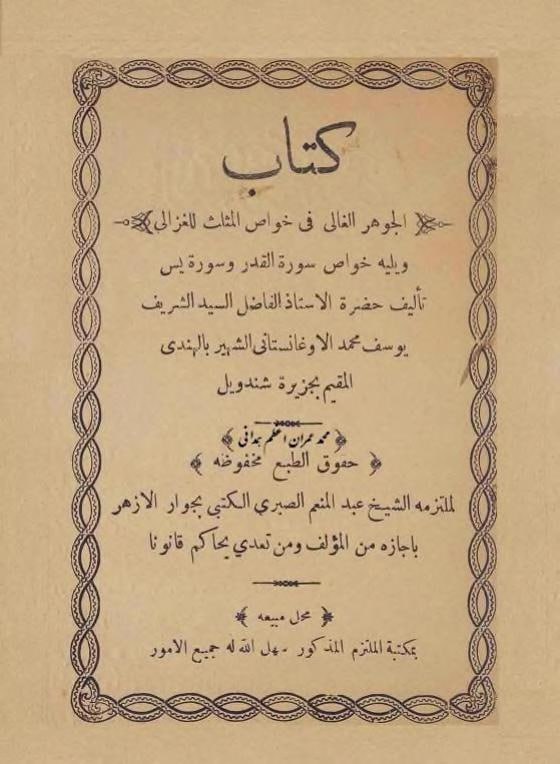 كتاب
الجوهر الغالى فى خواص المثلث للغزالى
ويليه خواص سورة القدر وسورة يس
تأليف حضرة الاستاذ الفاضل السيد الشريف
يوسف محمد الاوغانستانى الشهير بالهندى
المقيم بجزيرة شندويل
﴿ محمد عمران اعظم ہمدانی ﴾
﴿ حقوق الطبع محفوظه ﴾
لملتزمه الشيخ عبد المنعم الصبري الكتبي بجوار الازهر
باجازه من المؤلف ومن تعدي يحاكم قانونا
﴿ محل مبيعه ﴾
بمكتبة الملتزم المذكور سهل الله له جميع الامور